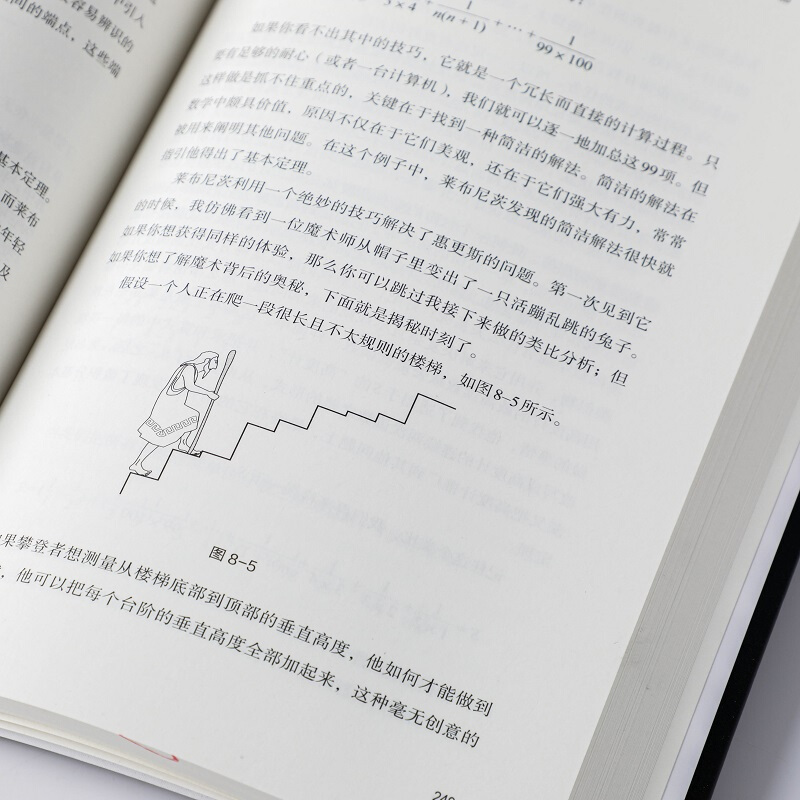 中引入
容易辨识的
间的端点，这些端
基本定理。
而莱布
年轻
及
3×4 + 1/n(n+1) + ··· + 1/99×100
如果你看不出其中的技巧，它就是一个冗长而直接的计算过程。只
要有足够的耐心（或者一台计算机），我们就可以逐一地加总这99项。但
这样做是抓不住重点的，关键在于找到一种简洁的解法。简洁的解法在
数学中颇具价值，原因不仅在于它们美观，还在于它们强大有力，常常
被用来阐明其他问题。在这个例子中，莱布尼茨发现的简洁解法很快就
指引他得出了基本定理。
莱布尼茨利用一个绝妙的技巧解决了惠更斯的问题。第一次见到它
的时候，我仿佛看到一位魔术师从帽子里变出了一只活蹦乱跳的兔子。
如果你想获得同样的体验，那么你可以跳过我接下来做的类比分析；但
如果你想了解魔术背后的奥秘，下面就是揭秘时刻了。
假设一个人正在爬一段很长且不太规则的楼梯，如图8-5所示。
图8-5
果攀登者想测量从楼梯底部到顶部的垂直高度，他如何才能做到
，他可以把每个台阶的垂直高度全部加起来，这种毫无创意的